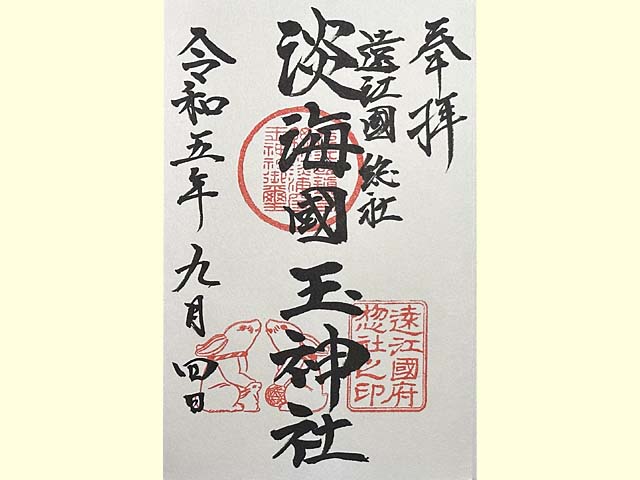 奉拝
遠江國 総社
淡海國玉神社
令和五年 九月 四日
遠江國府
惣社之印